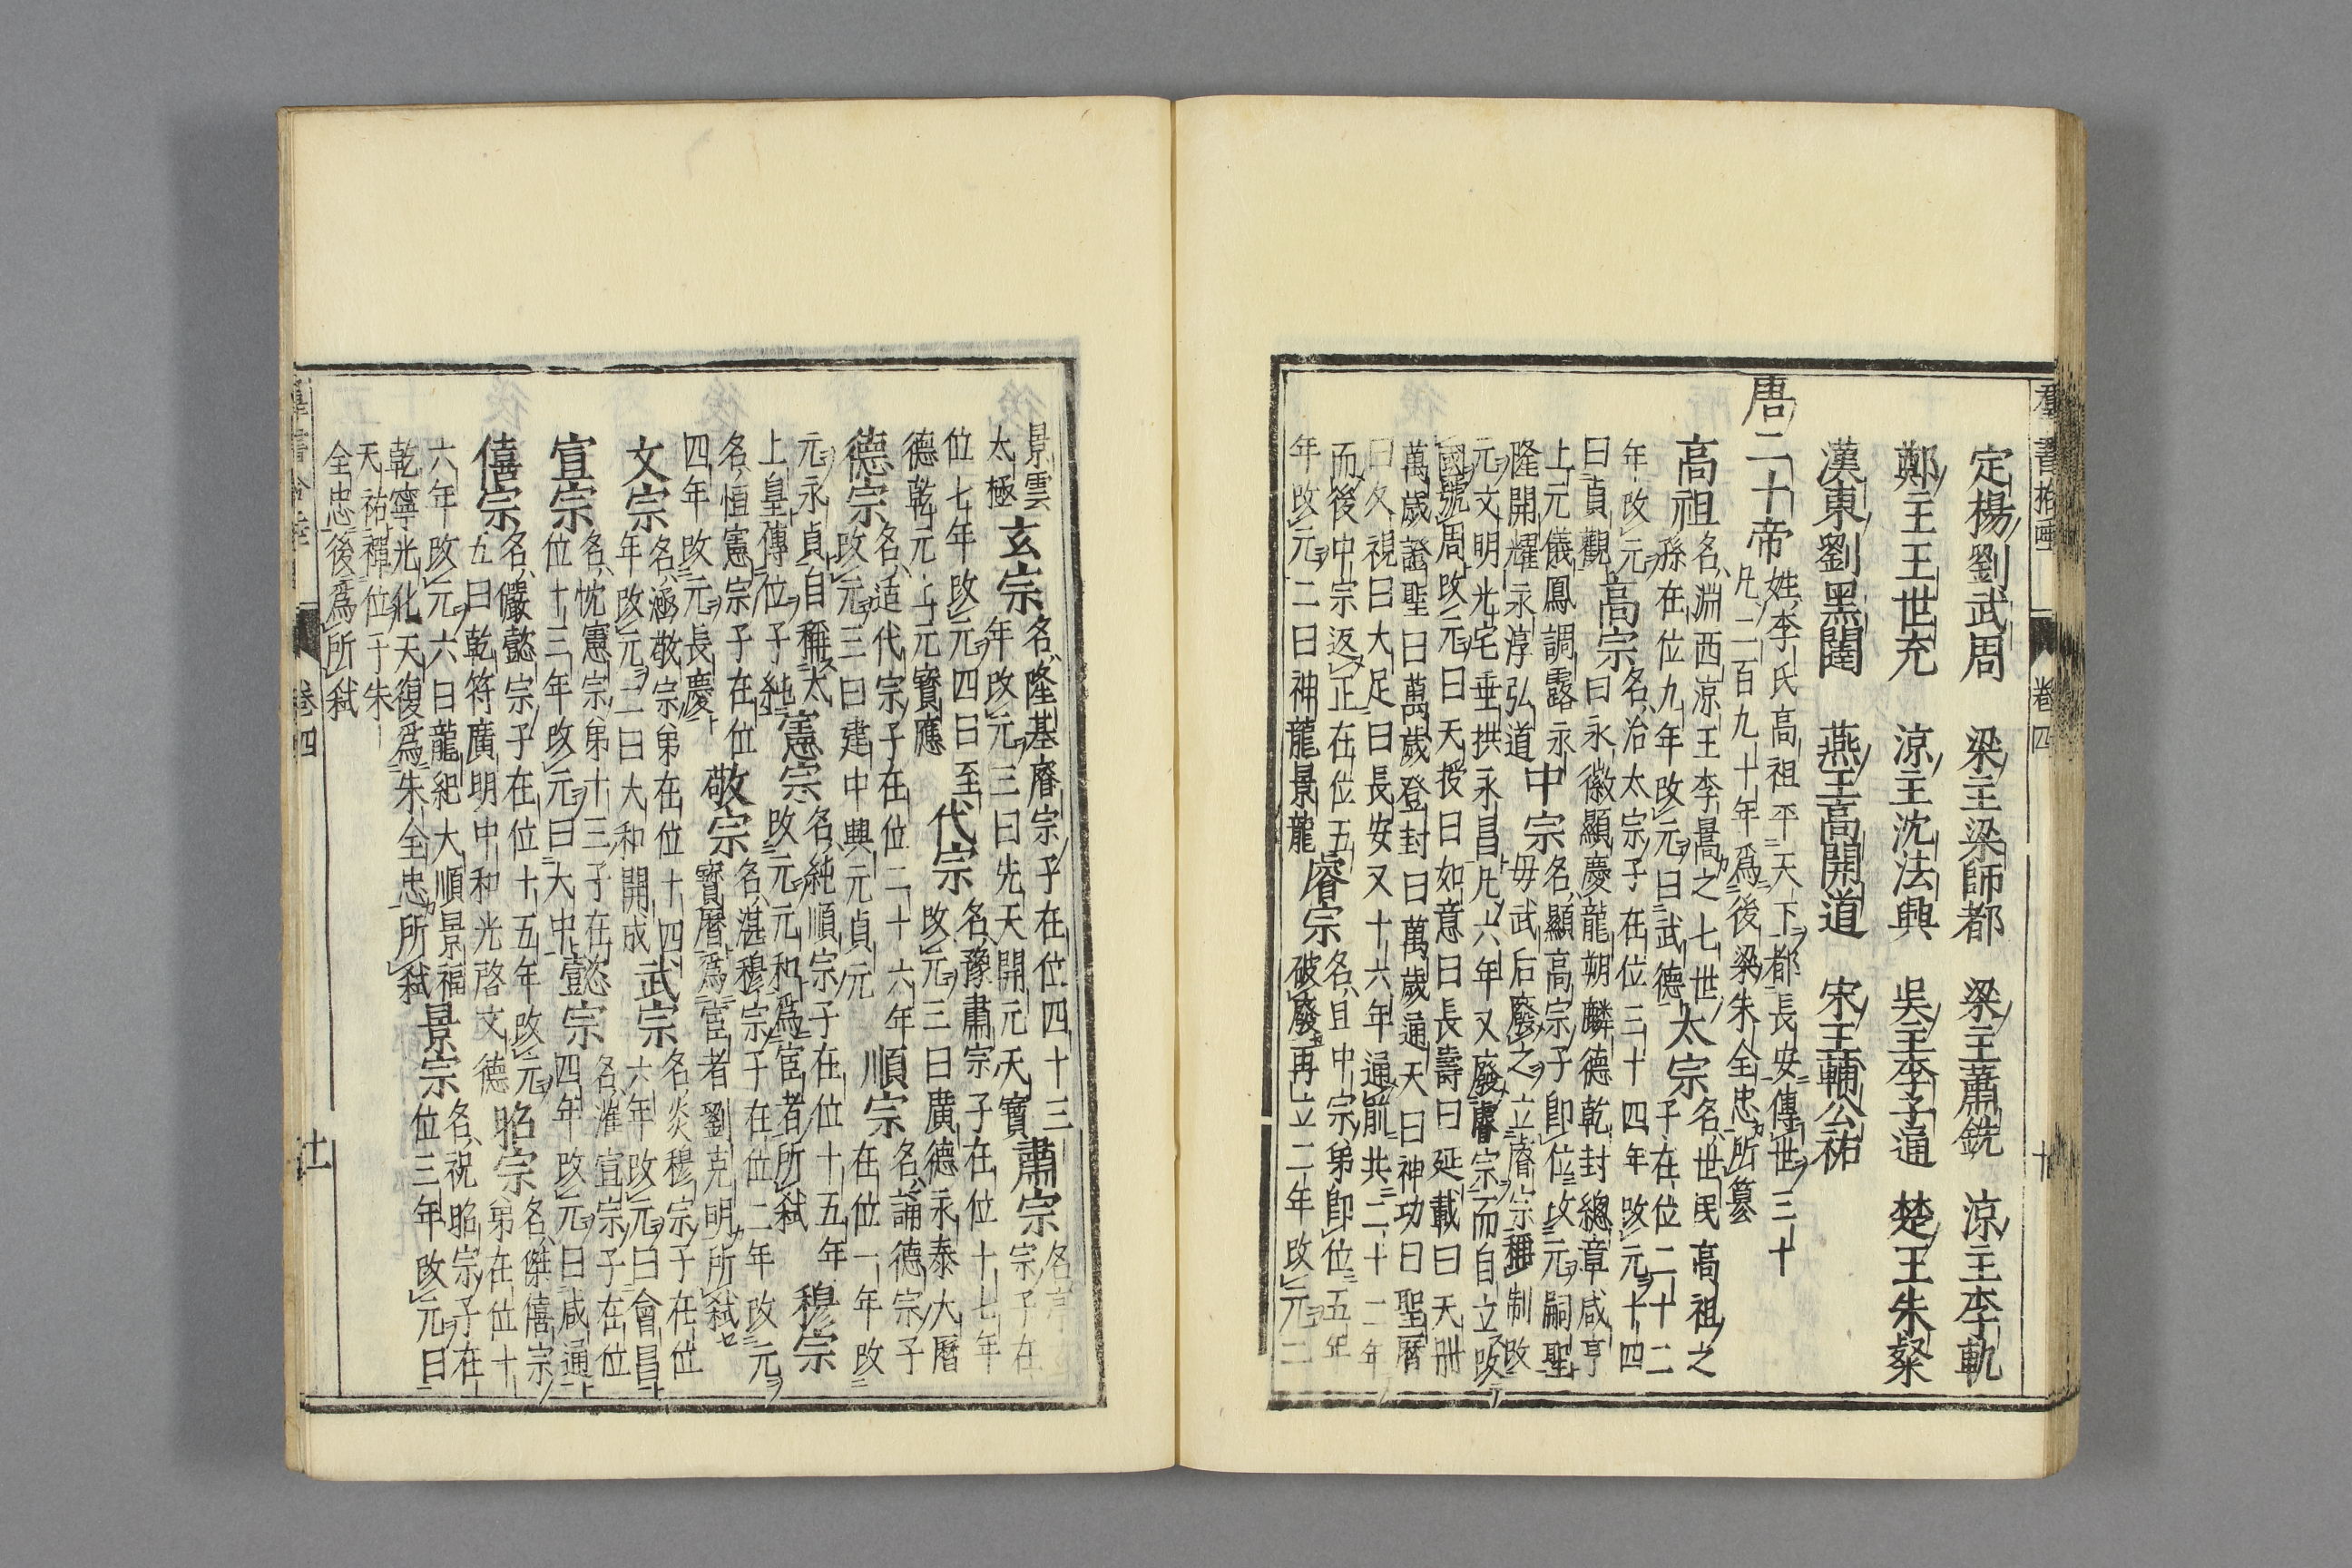 群書拾唾 卷四 十
定楊劉武周 梁主梁師都 梁主蕭銑 涼主李軌
鄭主王世充 涼主沈法興 吳主李子通 楚王朱粲
漢東劉黑闥 燕王高開道 宋王輔公祐
唐二十帝 姓李氏高祖平天下都長安傳世三十
凡二百九十年爲後梁朱全忠所篡
高祖 名淵西涼王李暠之七世
孫在位九年改元曰武德
太宗 名世民高祖之
子在位二十二
年改元
曰貞觀
高宗 名治太宗子在位三十四年改元十四
曰永徽顯慶龍朔麟德乾封總章咸亨
上元儀鳳調露永
隆開耀永淳弘道
中宗 名顯高宗子即位改元嗣聖
母武后廢之立睿宗稱制改
元文明光宅垂拱永昌凡六年又廢睿宗而自立改
國號周改元曰天授曰如意曰長壽曰延載曰天冊
萬歲證聖曰萬歲登封曰萬歲通天曰神功曰聖曆
曰久視曰大足曰長安又十六年通前共二十二年
而後中宗返正在位五
年改元二曰神龍景龍
睿宗 名旦中宗弟即位五年
破廢再立二年改元二
景雲
太極
玄宗 名隆基睿宗子在位四十三
年改元三曰先天開元天寶
肅宗 名亨
宗子在
位七年改元四曰至
德乾元上元寶應
代宗 名豫肅宗子在位十七年
改元三曰廣德永泰大曆
德宗 名适代宗子在位二十六年
改元三曰建中興元貞元
順宗 名誦德宗子
在位一年改
元永貞自稱太
上皇傳位子純
憲宗 名純順宗子在位十五年
改元元和爲宦者所弒
穆宗
名恒憲宗子在位
四年改元長慶
敬宗 名湛穆宗子在位二年改元
寶曆爲宦者劉克明所弒
文宗 名涵敬宗弟在位十四
年改元二曰大和開成
武宗 名炎穆宗子在位
六年改元曰會昌
宣宗 名忱憲宗弟十三子在
位十三年改元曰大中
懿宗 名漼宣宗子在位
四年改元曰咸通
僖宗 名儼懿宗子在位十五年改元
五曰乾符廣明中和光啓文德
昭宗 名傑僖宗
弟在位十
六年改元六曰龍紀大順景福
乾寧光化天復爲朱全忠所弒
景宗 名祝昭宗子在
位三年改元曰
天祐禪位于朱
全忠後爲所弒
卷四 十一